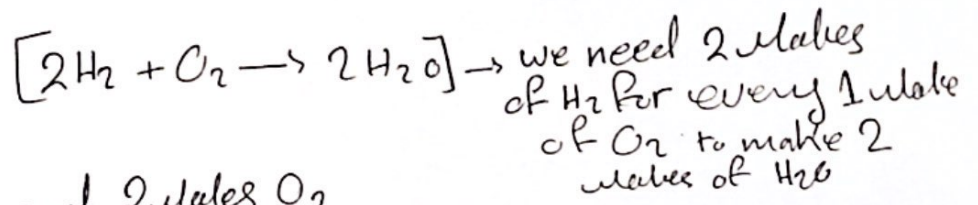 [2H₂ + O₂ → 2H₂O] → we need 2 Moles
of H₂ for every 1 mole
of O₂ to make 2
moles of H₂O
2 Moles O₂